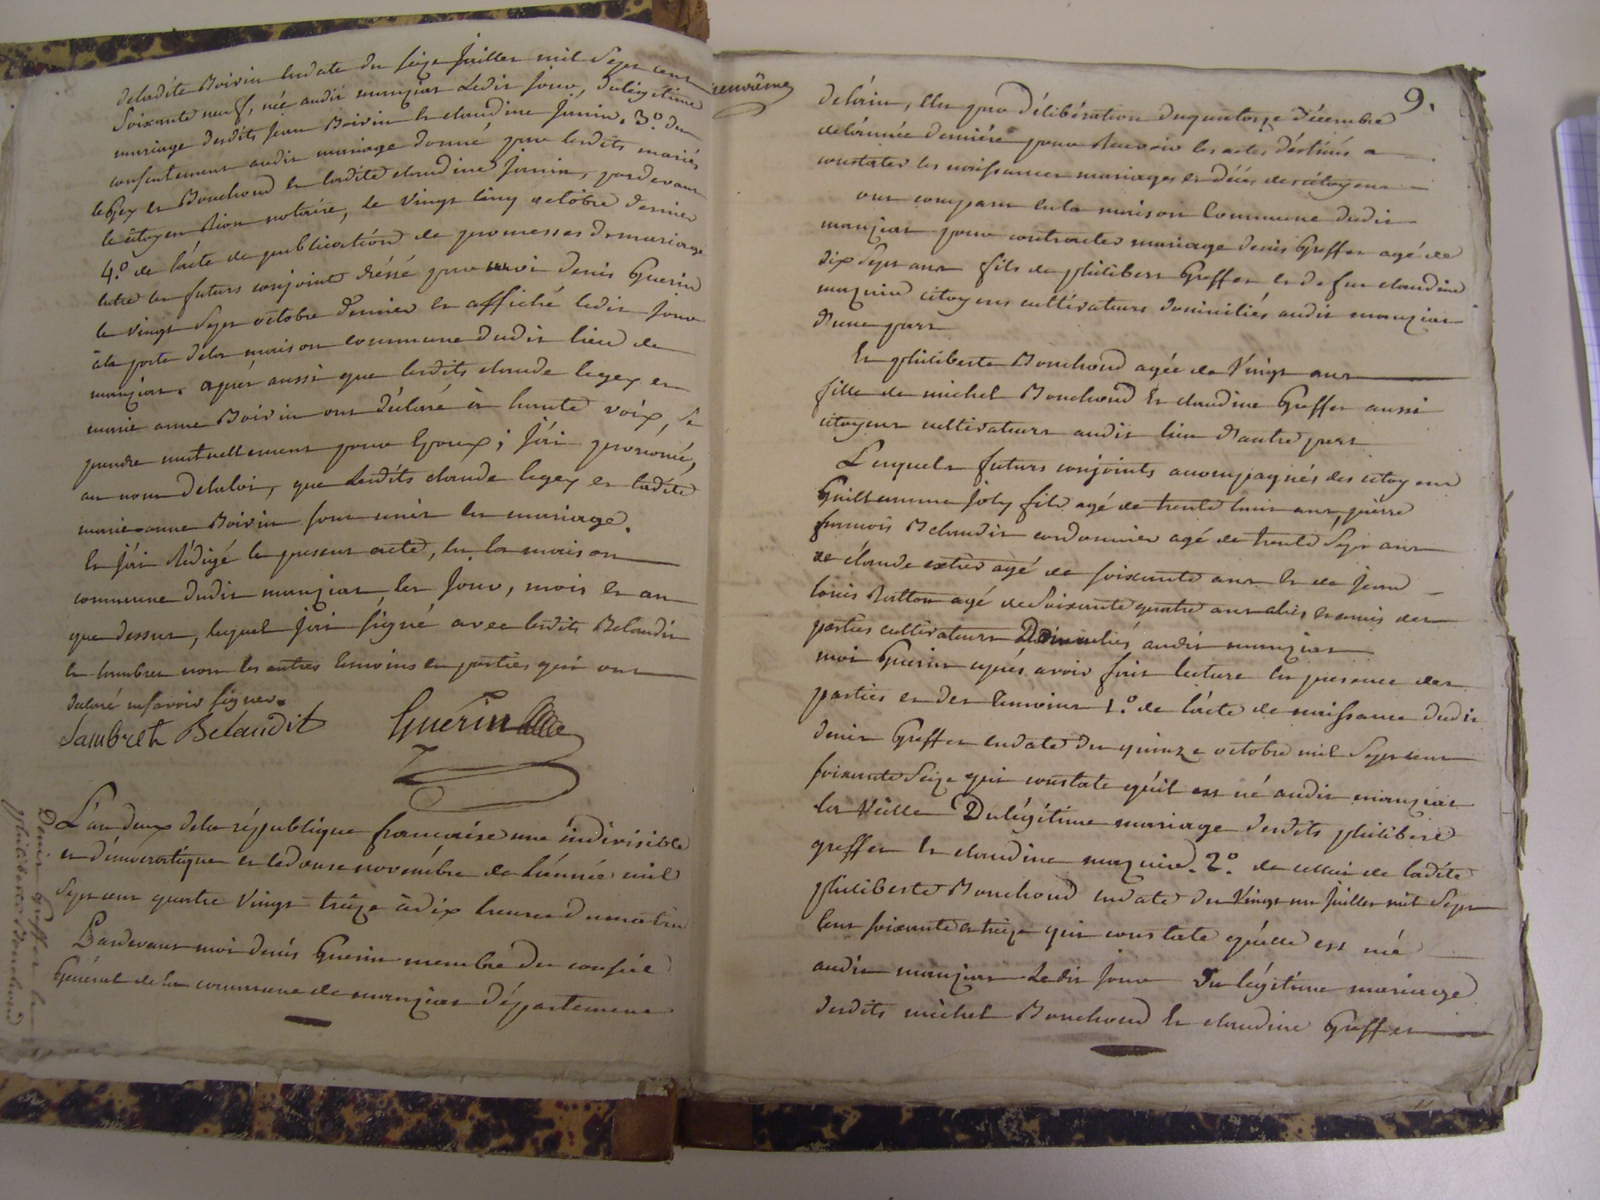 deladite Boivin en date du seize Juillet mil Sept cent
Soixante neuf, née audit manziat Ledit Jour, du légitime
mariage desdits Jean Boivin et claudine Janin. 3.º du
consentement audit mariage donné par lesdits mariés
legey et Bouchoud et ladite claudine Janin, pardevant
le citoyen Rion notaire, le vingt cinq octobre dernier
4.º de l'acte de publication de promesses de mariage
entre les futurs conjoints dréssé par moi denis Guerin
le vingt Sept octobre dernier et affiché ledit Jour
à la porte dela maison commune dudit lieu de
manziat. aprés aussi que lesdits claude legey et
marie anne Boivin ont déclaré à haute voix, se
prendre mutuellement pour Epoux; J'ai prononcé,
au nom delaloi, que Lesdits claude legey et ladite
marie-anne Boivin sont unis en mariage.
Et J'ai rédigé le present acte, en la maison
commune dudit manziat, les Jour, mois et an
que dessus, lequel J'ai signé avec lesdits Belaudit
et lambret non les autres temoins et parties qui ont
déclaré ne savoir signer.
Lambret Belaudit Guérin
Denis Greffet et
philiberte Bouchoud
L'an deux dela république francaise une indivisible
et démocratique et le douze novembre de l'année mil
Sept cent quatre vingt treize à dix heures du matin
Pardevant moi denis Guerin membre du conseil
Général de la commune de manziat département
neuvième
9.
delain, élu par délibération du quatorze décembre
de l'année derniére pour recevoir les actes destinés a
constater les naissances mariages et décés des citoyens
ont comparu en la maison Commune dudit
manziat pour contracter mariage denis Greffet agé de
dix Sept ans fils de philibert Greffet et de fue claudine
mazuire citoyens cultivateurs domiciliés audit manziat
d'une part
Et philiberte Bouchoud agée de Vingt ans
fille de michel Bouchoud et claudine Greffet aussi
citoyens cultivateurs audit lieu d'autre part
Lesquels futurs conjoints accompagnés des citoyens
Guillaume Joly fils agé de trente ans, piérre
francois Belaudit cordonnier agé de trente Sept ans
de claude agé de soixante ans et de Jean
louis Rutton agé de Soixante quatre ans alliés et amis des
parties cultivateurs Domiciliés audit manziat
moi Guerin aprés avoir fait lecture en presence des
parties et des temoins 1.º de l'acte de naissance dudit
denis Greffet en date du quinze octobre mil Sept cent
soixante Seize qui constate qu'il est né audit manziat
la veille Du légitime mariage desdits philibert
greffet et claudine mazuire. 2.º de celui de ladite
philiberte Bouchoud en date du Vingt un Juillet mil Sept
cent soixante et treize qui constate qu'elle est né
audit manziat Ledit Jour Du légitime mariage
desdits michel Bouchoud et claudine Greffet